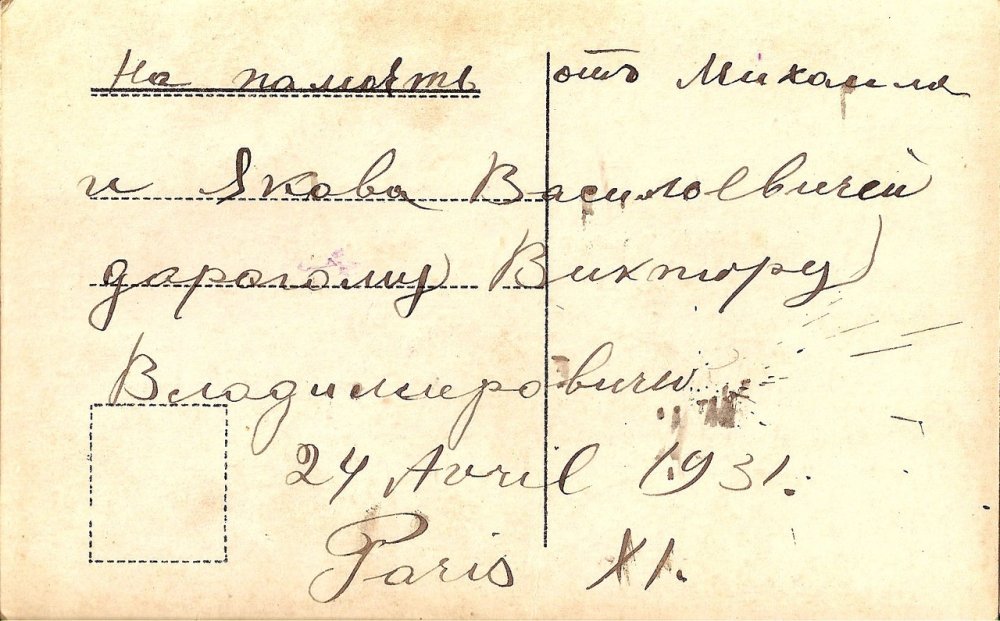 На память отъ Михаила
и Якова Василіевичей
дарогому Виктору
Владимировичу
24 Avril 1931.
Paris XI.